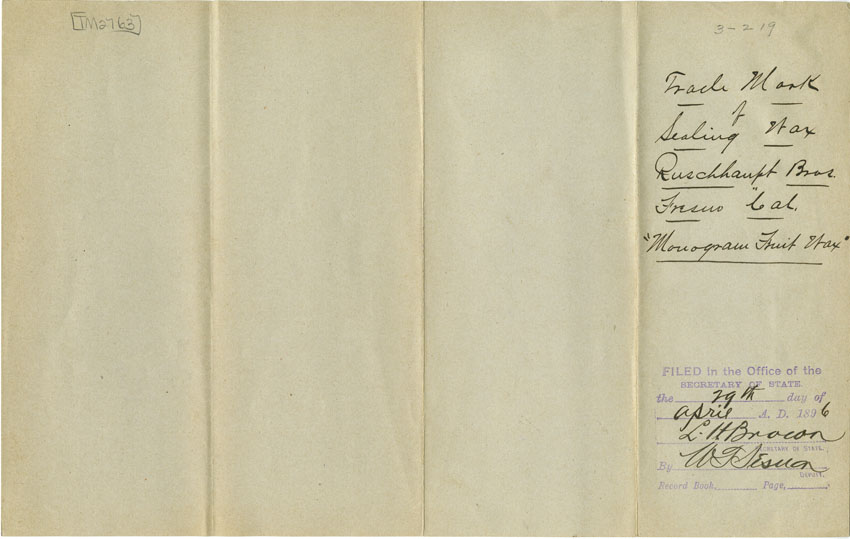 TM2763
3-2-19
Trade Mark
of
Sealing Wax
Ruschhaupt Bros.
Fresno Cal.
"Monogram Fruit Wax"
FILED in the Office of the
SECRETARY OF STATE
the 29th day of
April A. D. 1896
L. H. Brown
SECRETARY OF STATE.
By
DEPUTY.
Record Book, Page,